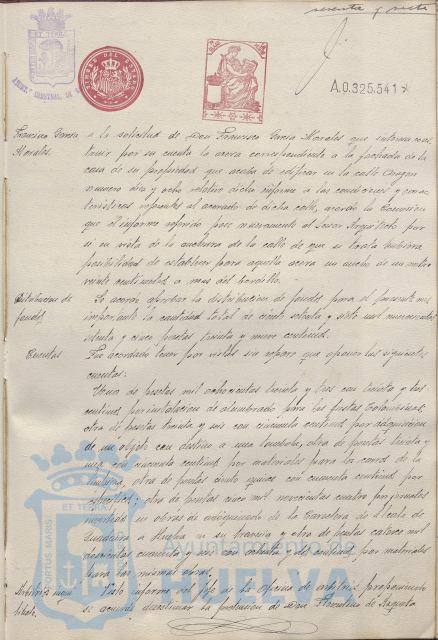 sesenta y siete
A.0.325.541
Francisco Garcia Morales.
a la solicitud de Don Francisco Garcia Morales que interesa cons-
truir por su cuenta la acera correspondiente a la fachada de la
casa de su propiedad que acaba de edificar en la calle Aragon
numero diez y ocho relativo dicho informe a las condiciones y carac-
teristicas referentes al acerado de dicha calle, acordó la Comision
que el informe referido pase nuevamente al Señor Arquitecto por
si en vista de la anchura de la calle de que se trata hubiera
posibilidad de establecer para aquella acera un ancho de un metro
veinte centimetros a mas del bordillo.
Distribucion de fondos
Se acordó aprobar la distribucion de fondos para el presente mes
importante la cantidad total de ciento setenta y siete mil novecientas
setenta y cinco pesetas treinta y nueve centimos.
Cuentas
Fue acordado tener por vistas sin reparo que oponer las siguientes
cuentas:
Una de pesetas mil ochocientas treinta y tres con treinta y tres
centimos por instalacion de alumbrado para las fiestas Colombinas;
otra de pesetas treinta y seis con cincuenta centimos por adquisicion
de un objeto con destino a una tombola; otra de pesetas treinta y
una con cincuenta centimos por materiales para los carros de la
limpieza; otra de pesetas ciento quince con cuenta centimos por
; otra de pesetas cinco mil novecientas cuatro por jornales
invertidos en obras de adoquinado de la Carretera de Alcalá de
Guadaira a Huelva y su travesia y otra de pesetas catorce mil
doscientas cuarenta y seis con ochenta y tres centimos por materiales
para las mismas obras.
Visto informe del Jefe de la oficina de arbitrios proponiendo
se acordó desestimar la peticion de Don Florentino de
ET TERRAE
PORTUS MARIS
Ayuntamiento de
HUELVA